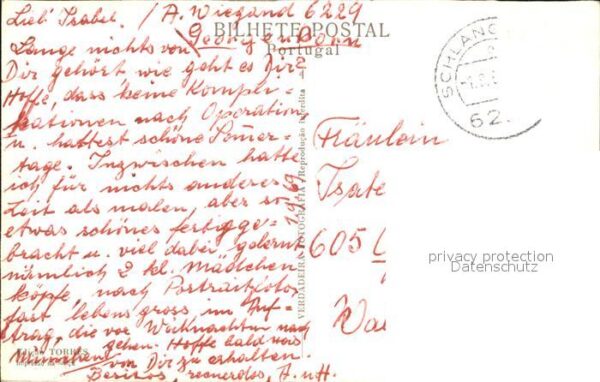 Lieb' Isabel. / A. Wiegand 6229
9 Georgenborn
BILHETE POSTAL
Portugal
Lange nichts von
Dir gehört, wie geht es Dir?
Hoffe, dass keine Kompli-
kationen nach Operation
u. hattest schöne Sommer-
tage. Inzwischen hatte
ich für nichts anderes
Zeit als malen, aber so
etwas schönes fertigge-
bracht u. viel dabei gelernt
nämlich 2 kl. Mädchen
köpfe, nach Porträtfotos
fast lebensgross, im Auf-
trag, die vor Weihnachten nach
München gehen. Hoffe bald was
von Dir zu erhalten.
Besitos, recuerdos, A. u H.
TORRES
VERDADEIRA FOTOGRAFIA / Reprodução interdita
SCHLANG
62
Fräulein
605
privacy protection
Datenschutz